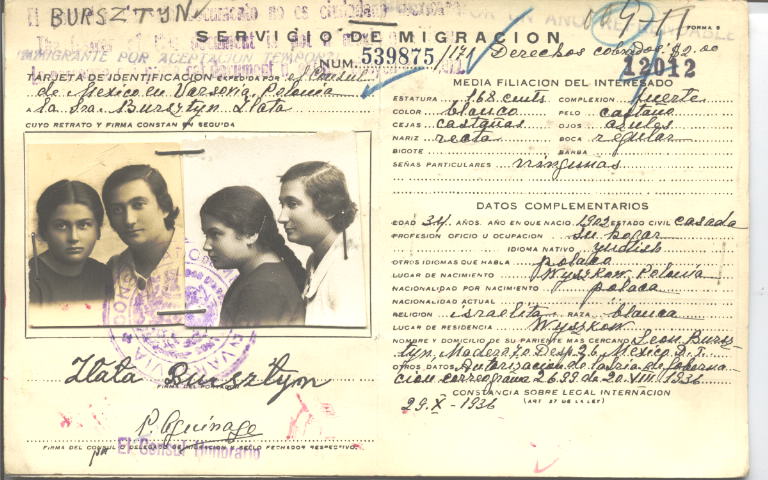 BURSZTYN
documento no es
SERVICIO DE MIGRACION
FORMA 5
INMIGRANTE POR ACEPTACION
NUM. 539875/171
Derechos cobrados $2.00
12012
TARJETA DE IDENTIFICACION EXPEDIDA POR el Consul
de Mexico en Varsovia, Polonia
a la Sra. Bursztyn Zlata
CUYO RETRATO Y FIRMA CONSTAN EN SEGUIDA
Zlata Bursztyn
FIRMA DEL PORTADOR
FIRMA DEL CONSUL O DELEGADO DE MIGRACION Y SELLO FECHADOR RESPECTIVO.
El Consul Honorario
MEDIA FILIACION DEL INTERESADO
ESTATURA 168 cmts COMPLEXION fuerte
COLOR blanco PELO castaño
CEJAS castañas OJOS azules
NARIZ recta BOCA regular
BIGOTE BARBA
SEÑAS PARTICULARES ningunas
DATOS COMPLEMENTARIOS
EDAD 34 AÑOS. AÑO EN QUE NACIO 1902 ESTADO CIVIL casada
PROFESION OFICIO U OCUPACION su hogar
IDIOMA NATIVO yudish
OTROS IDIOMAS QUE HABLA polaco
LUGAR DE NACIMIENTO Wyszkow Polonia
NACIONALIDAD POR NACIMIENTO polaca
NACIONALIDAD ACTUAL
RELIGION israelita RAZA blanca
LUGAR DE RESIDENCIA Wyszkow
NOMBRE Y DOMICILIO DE SU PARIENTE MAS CERCANO Leon Bursz
tyn, Madero 70. Desp. 26, Mexico D. F.
OTROS DATOS Autorizacion de la Sria de Goberna
cion correograma 2699 de 20. VIII. 1936
CONSTANCIA SOBRE LEGAL INTERNACION
29. X - 1936 (ART 57 DE LA LEY)